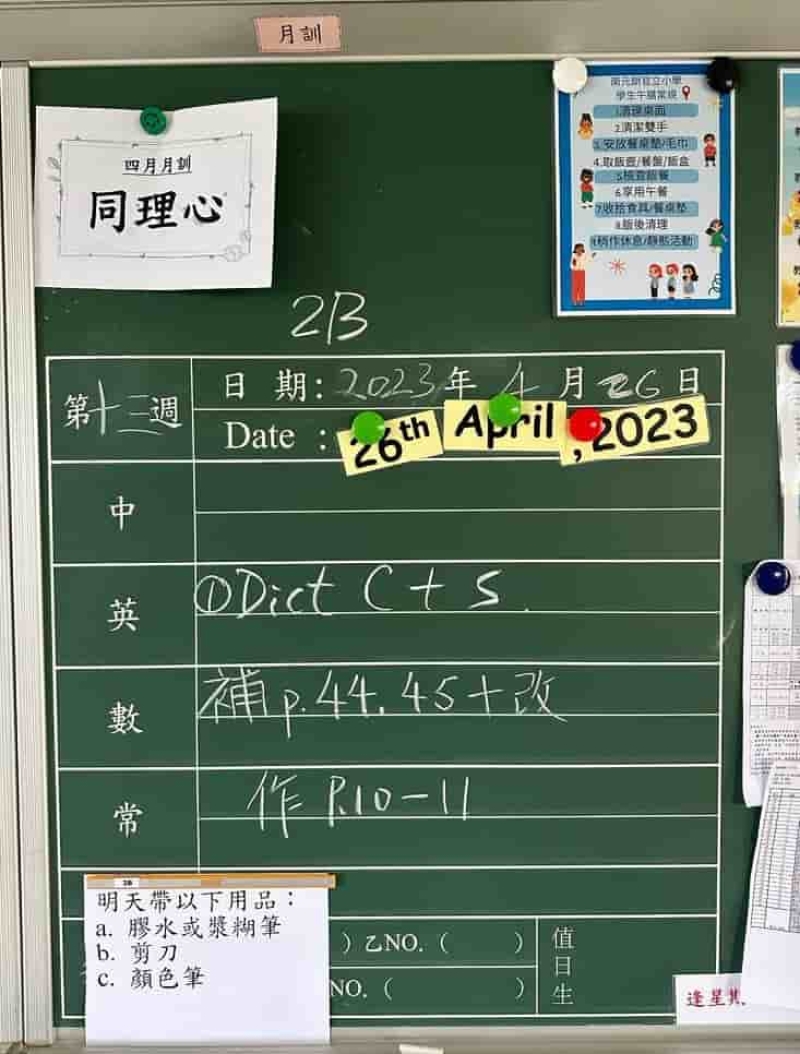 月訓
四月月訓
同理心
學生午膳常規
1.清理桌面
2.清潔雙手
3.安放餐桌墊/毛巾
4.取飯壺/餐盤/飯盒
5.檢查飯餐
6.享用午餐
7.收拾食具/餐桌墊
8.飯後清理
9.稍作休息/靜態活動
2B
第十三週
日 期：2023年 4 月 26 日
Date : 26th April , 2023
中
英
①Dict C + S.
數
補 p.44. 45 + 改
常
作 P.10-11
2B
明天帶以下用品：
a. 膠水或漿糊筆
b. 剪刀
c. 顏色筆
) 乙NO. ( )
NO. ( )
值日生
逢星期